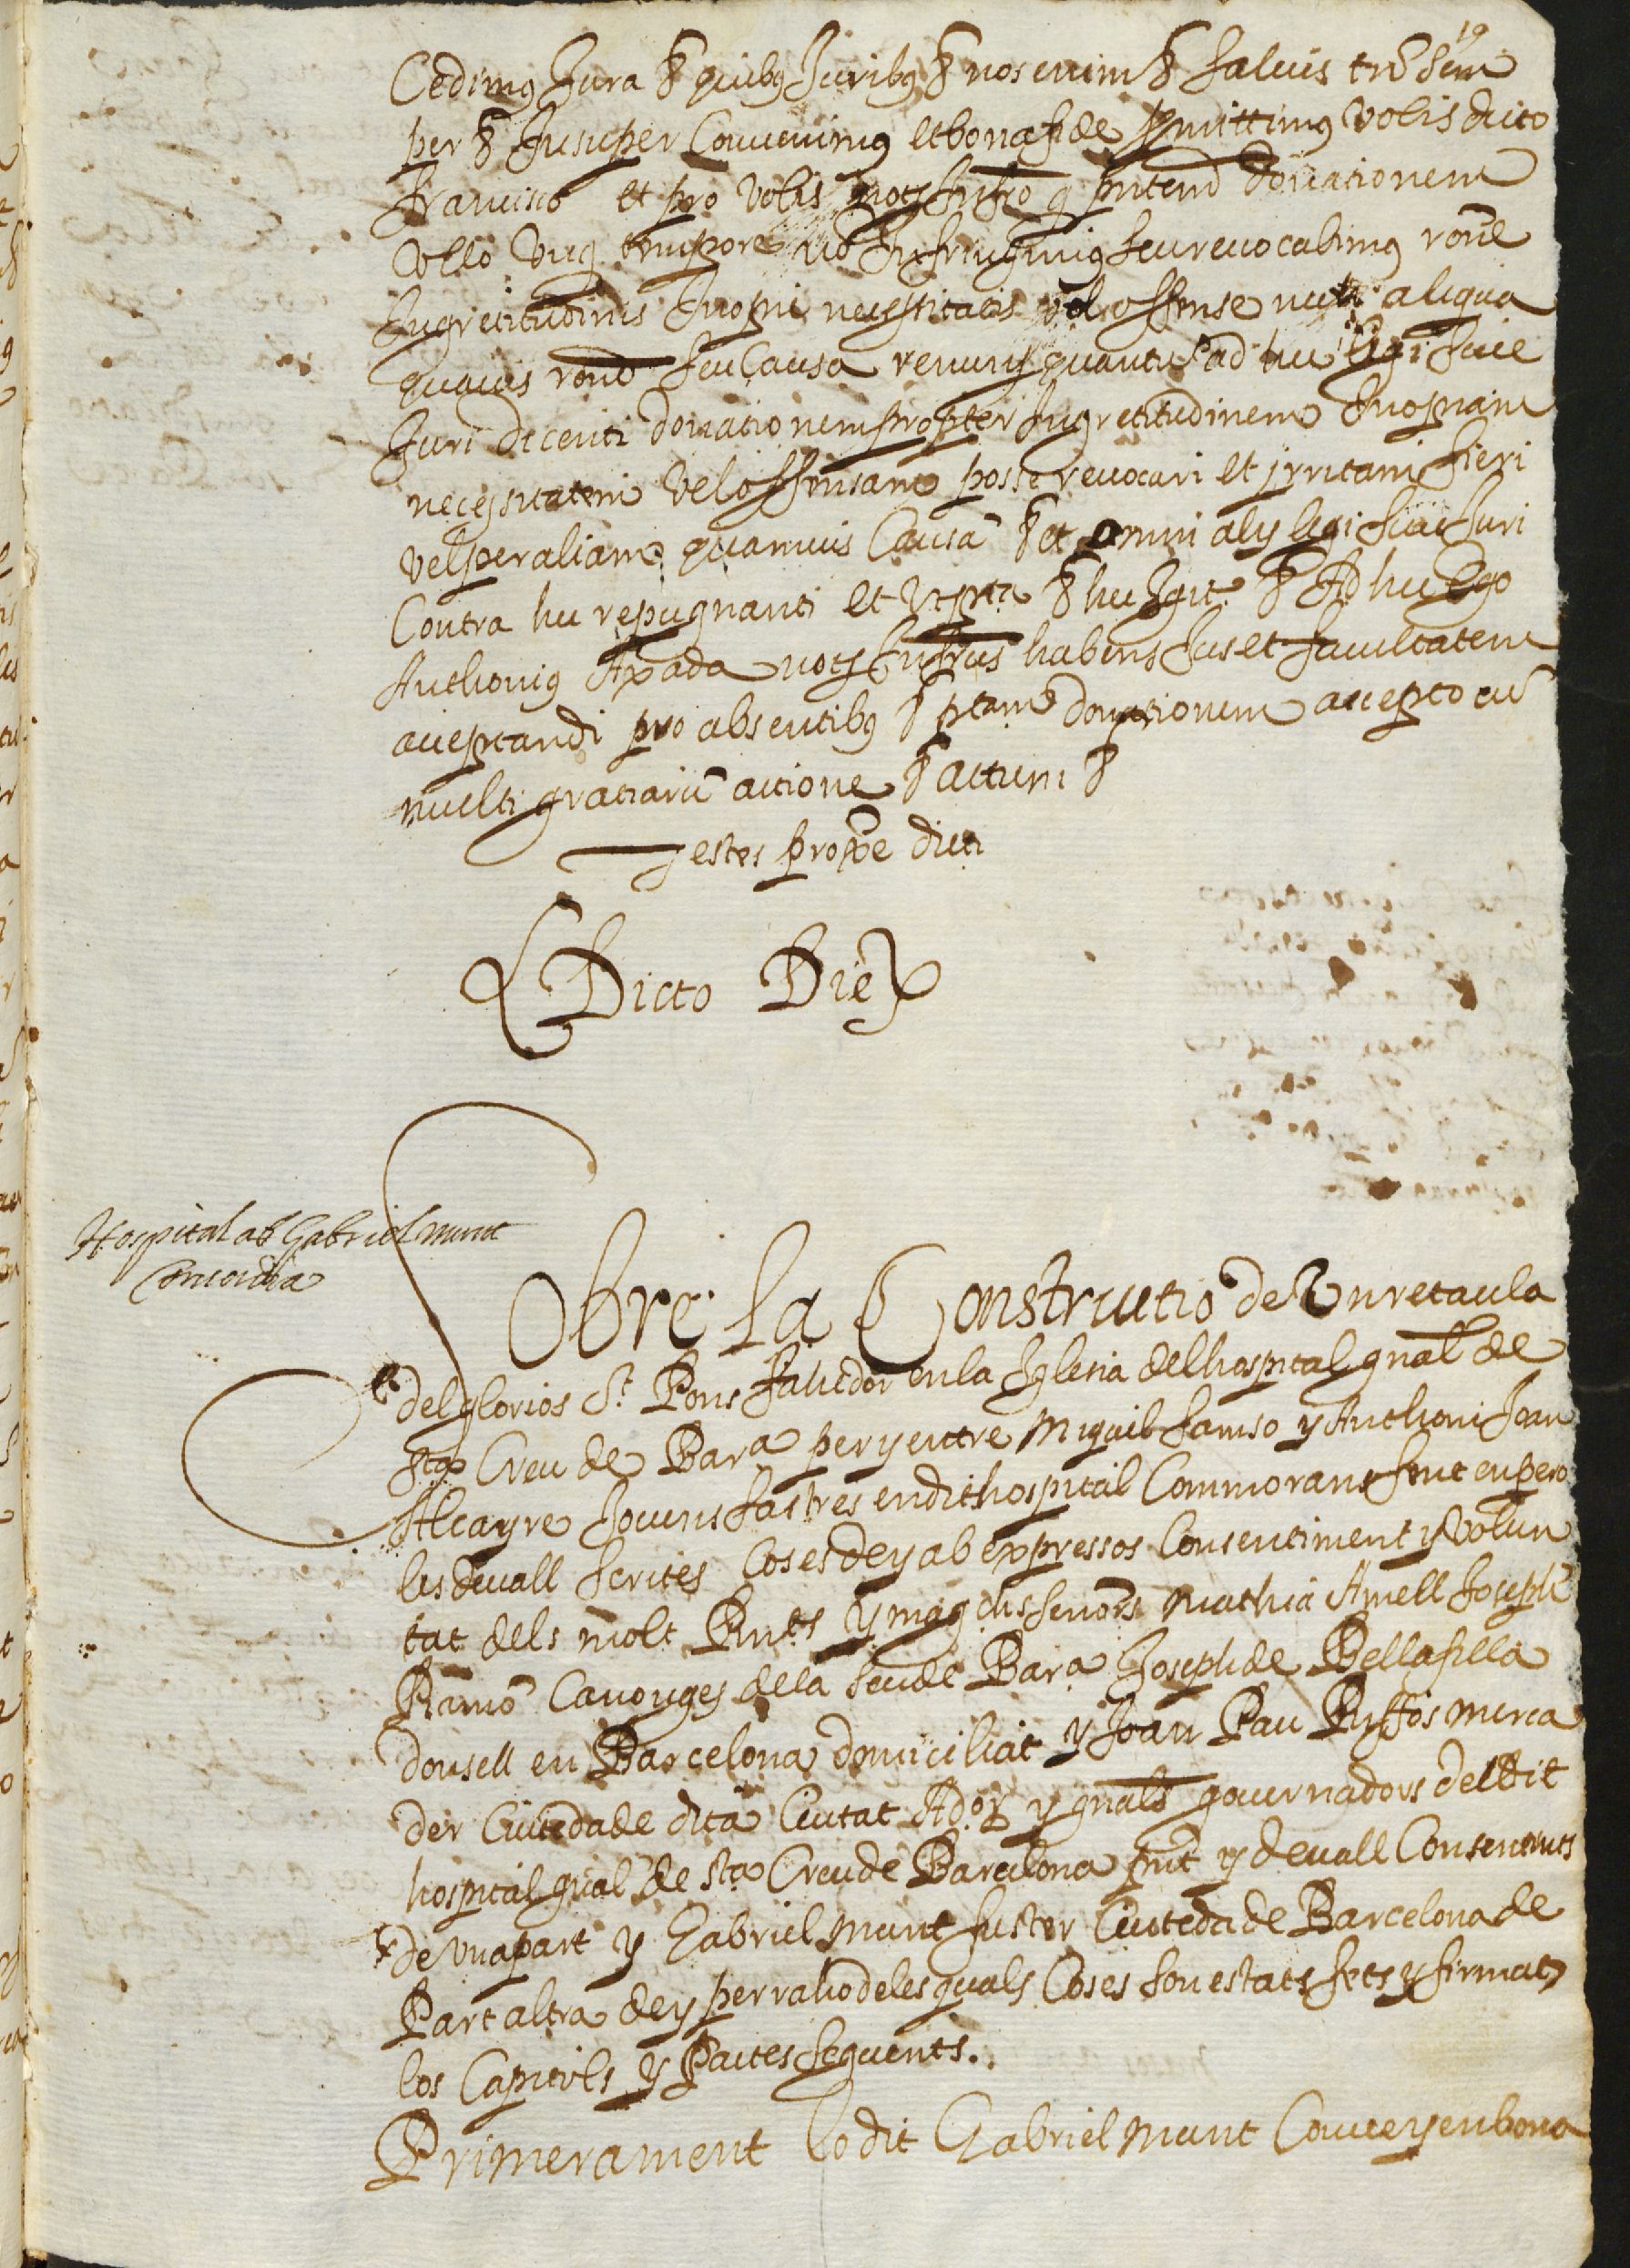 19
Cedimus Jura & quibus Juribus & nos enim & salvis tn̄ sem
per & Insuper Convenimus et bona fide pmittimus vobis dicto
Francisco et pro vobis noto Infro q̄ pntem donationem
Ullo unq̄ tempore nō Infringimus seu revocabimus rone
Ingratitudinis Inopie necessitatis vel offense aut aliqua
quavis rone seu causa renuns quantū ad hec legi sive
Juri dicenti donationem propter Ingratitudinem Inopiam
necessitatem vel offensam posse revocari et irritam fieri
vel per aliam quamvis Causā & et omni aly legi sive Juri
Contra hec repugnanti et & hec Igit. & Ad hec Ego
Anthonius Axada nots Infrus habens Jus et facultatem
acceptandi pro absentibus & ptam donationem accepto cū
multi gratiarū actione & actum &
Testes proxe dicti
Dicto Die
Hospital ab Gabriel Munt
Concordia
Sobre la Constructio de Un retaula
del glorios St. Pons fahedor en la Iglesia del hospital gnal de
Sta Creu de Bara per y entre Miquel Samso y Anthoni Joan
Alcayre Jovens sastres en dit hospital Commorans fent empero
les devall scrites Coses de y ab expressos Consentiment y volun
tat dels molt Rnts y magchs senors Mathia Amell Joseph
Ramō Canonges dela seu de Bara Joseph de Bellafilla
donsell en Barcelona domiciliat y Joan Pau Ruffos merca
der Ciutedā de dita Ciutat Ador̄s y gnals governadors del dit
hospital gnal de Sta Creu de Barcelona pnt y devall Consentints
de una part y Gabriel Munt fuster Ciutedā de Barcelona de
Part altra de y per raho de les quals Coses son estats fets y firmats
los Capitols y Pactes seguents.
Primerament lo dit Gabriel Munt Conve y en bona